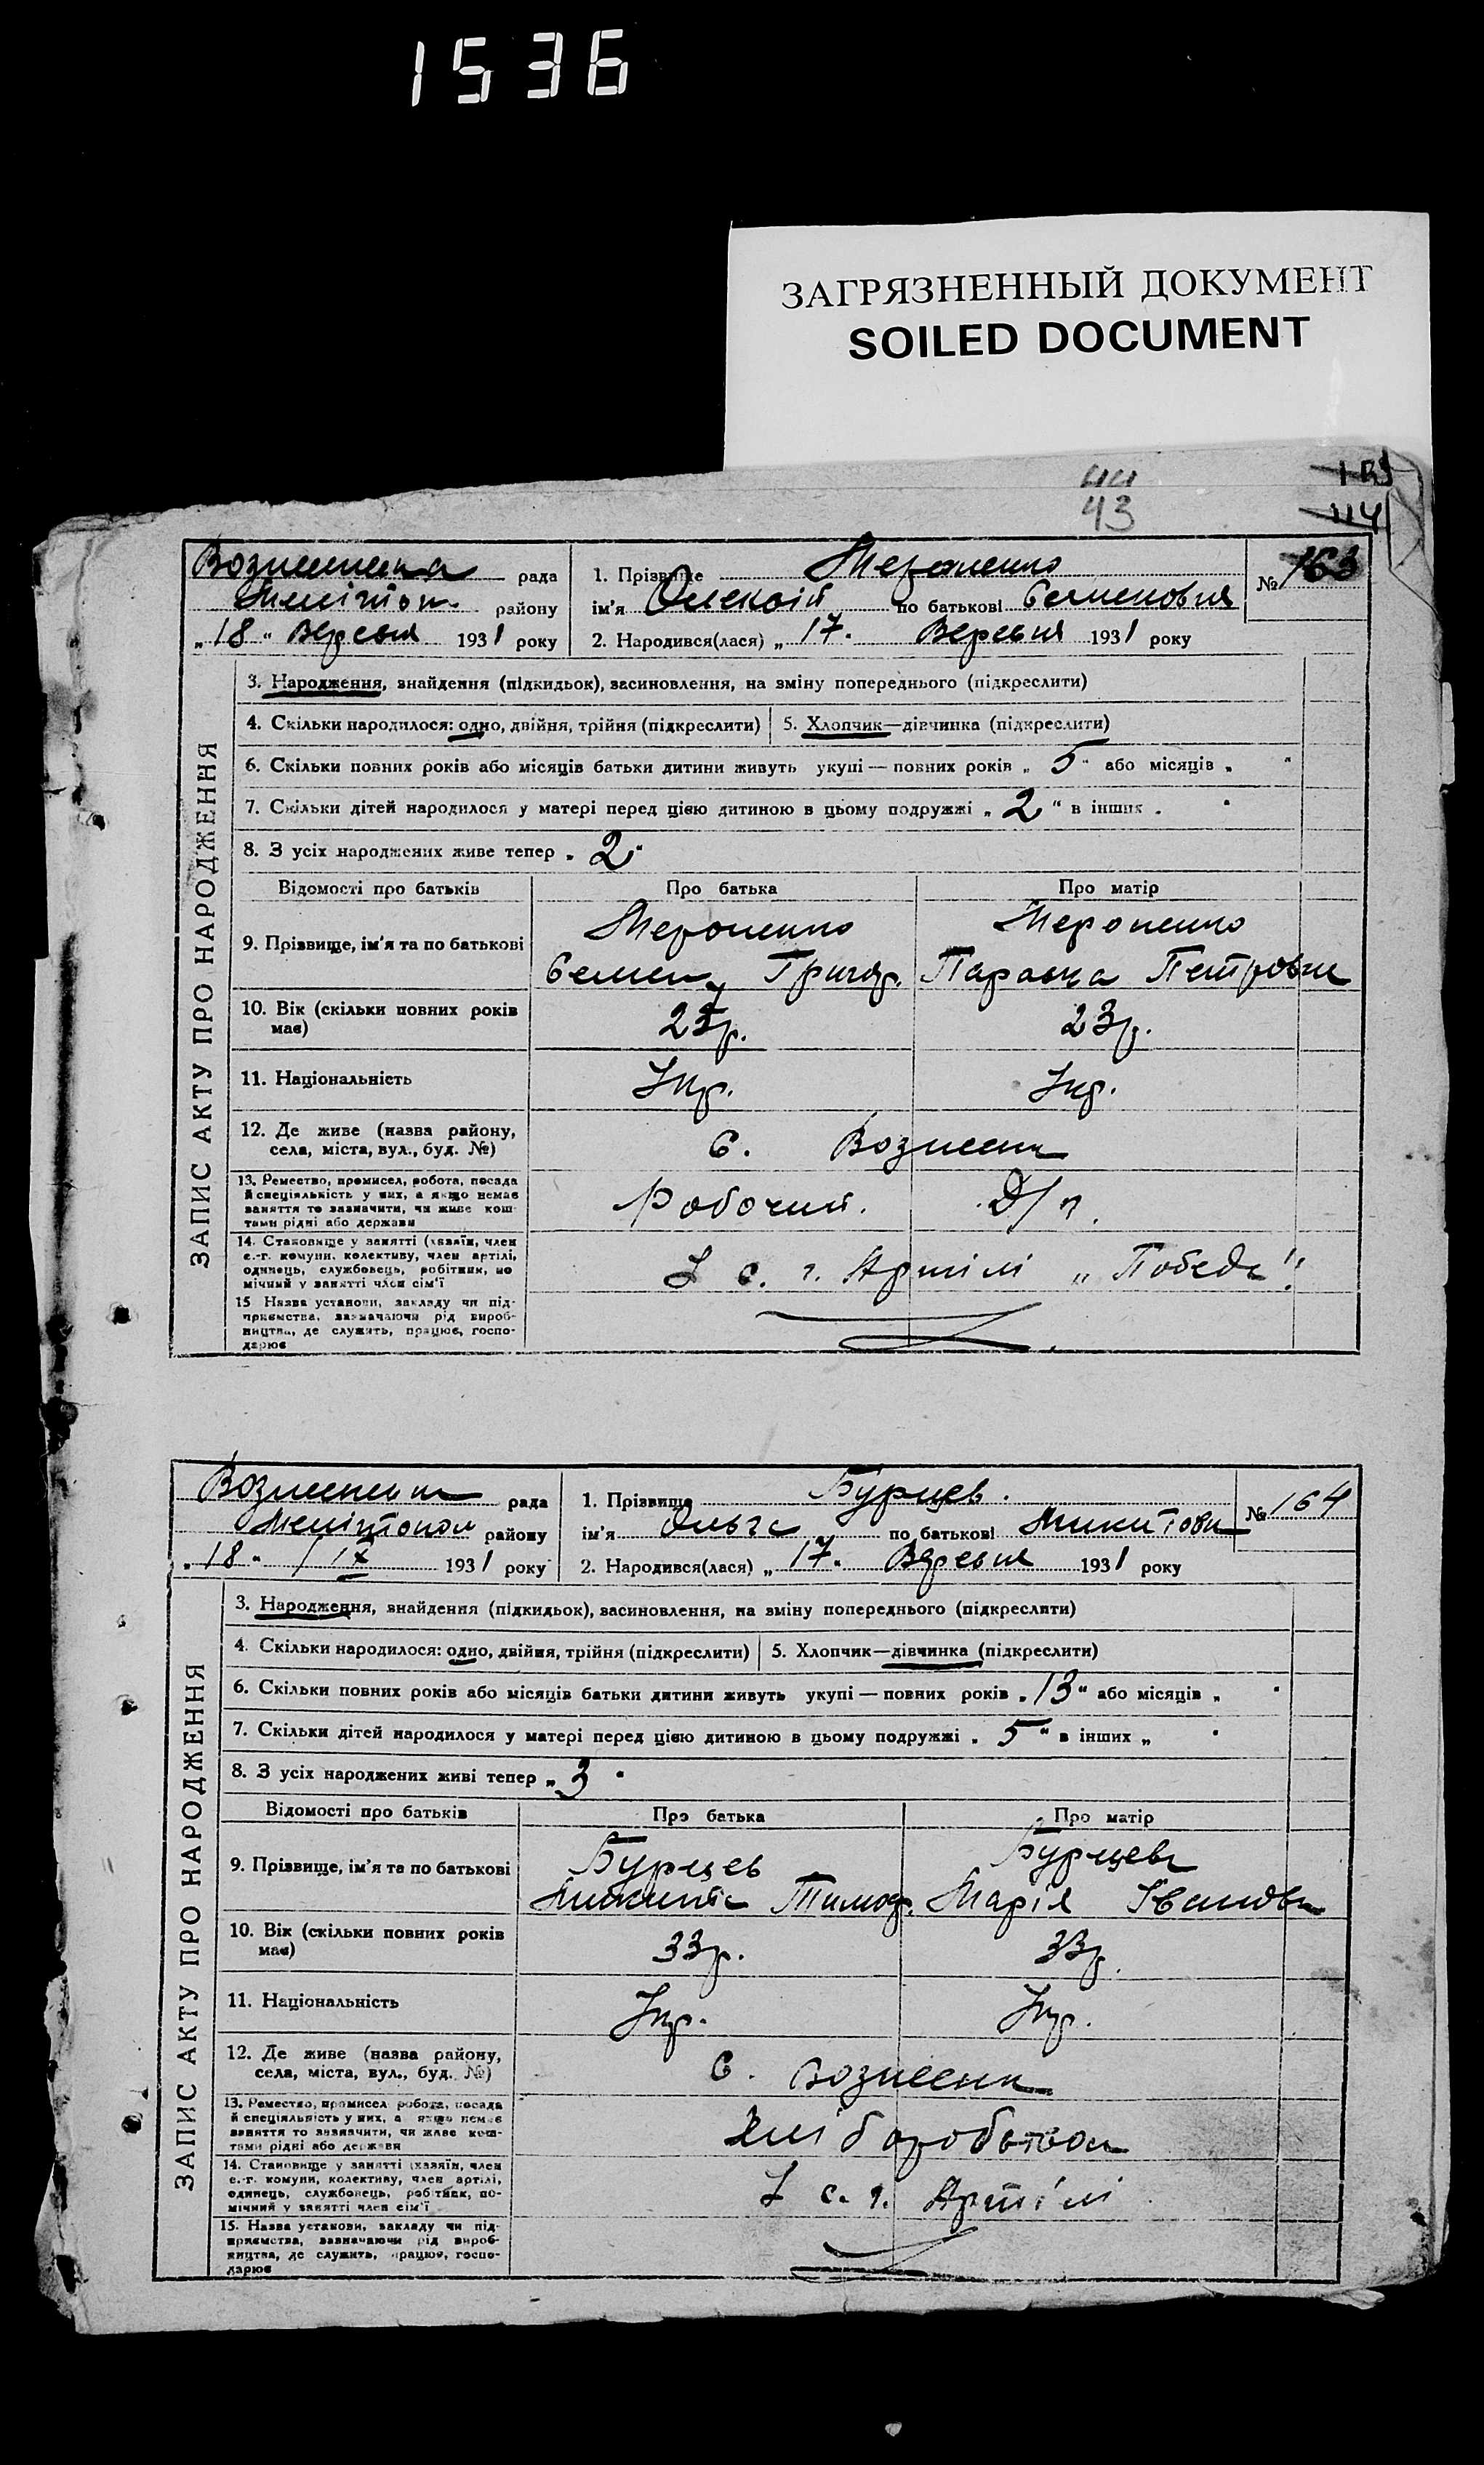 1536
ЗАГРЯЗНЕННЫЙ ДОКУМЕНТ
SOILED DOCUMENT
44
43
114
рада
1. Прізвище Мероненко
№ 163
Мелітоп. району
ім'я Олексій по батькові Семенович
„18" Вересня 1931 року
2. Народився(лася) „17" Вересня 1931 року
ЗАПИС АКТУ ПРО НАРОДЖЕННЯ
3. Народження, знайдення (підкидьок), засиновлення, на зміну попереднього (підкреслити)
4. Скільки народилося: одно, двійня, трійня (підкреслити) 5. Хлопчик—дівчинка (підкреслити)
6. Скільки повних років або місяців батьки дитини живуть укупі — повних років „5" або місяців „ "
7. Скільки дітей народилося у матері перед цією дитиною в цьому подружжі „2" в інших „ "
8. З усіх народжених живе тепер „2"
Відомості про батьків Про батька Про матір
9. Прізвище, ім'я та по батькові
Мероненко Мероненко
Семен Григор. Параска Петровн
10. Вік (скільки повних років
має)
23р.
11. Національність Укр. Укр.
12. Де живе (назва району,
села, міста, вул., буд. №)
С. Вознесенк
13. Ремество, промисел, робота, посада
й спеціяльність у них, а якщо немає
заняття то зазначити, чи живе кош-
тами рідні або держави
Робочий. Д/г.
14. Становище у занятті (хазяїн, член
с.-г. комуни, колективу, член артілі,
одинець, службовець, робітник, по
мічний у занятті член сім'ї
У с. г. Артілі „Победа"
15 Назва установи, закладу чи під-
приємства, зазначаючи рід вироб-
ництва, де служить, працює, госпо-
дарює
рада
1. Прізвище Бурцев.
№ 164
Мелітопол району
ім'я Ольга по батькові Микитовн
„18" /IX 1931 року
2. Народився(лася) „17" Вересня 1931 року
ЗАПИС АКТУ ПРО НАРОДЖЕННЯ
3. Народження, знайдення (підкидьок), засиновлення, на зміну попереднього (підкреслити)
4. Скільки народилося: одно, двійня, трійня (підкреслити) 5. Хлопчик—дівчинка (підкреслити)
6. Скільки повних років або місяців батьки дитини живуть укупі — повних років „13" або місяців „ "
7. Скільки дітей народилося у матері перед цією дитиною в цьому подружжі „5" в інших „ "
8. З усіх народжених живі тепер „3"
Відомості про батьків Про батька Про матір
9. Прізвище, ім'я та по батькові
Бурцев Бурцева
Микита Тимоф. Марія Івановн
10. Вік (скільки повних років
має)
33р. 33р.
11. Національність Укр. Укр.
12. Де живе (назва району,
села, міста, вул., буд. №)
С. Вознесенк
13. Ремество, промисел робота, посада
й спеціяльність у них, а якщо немає
заняття то зазначити, чи живе кош-
тами рідні або держави
Хліборобством
14. Становище у занятті (хазяїн, член
с.-г. комуни, колективу, член артілі,
одинець, службовець, робітник, по-
мічний у занятті член сім'ї
У с. г. Артілі
15. Назва установи, закладу чи під-
приємства, зазначаючи рід вироб-
ництва, де служить, працює, госпо-
дарює